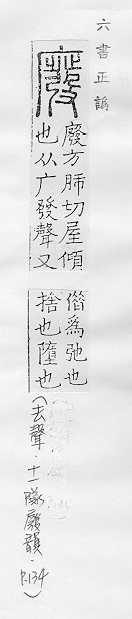 六書正譌
廢
廢方肺切屋傾
也从广發聲又
借爲弛也
捨也墮也
(去聲．十一隊廢韻．P.134)